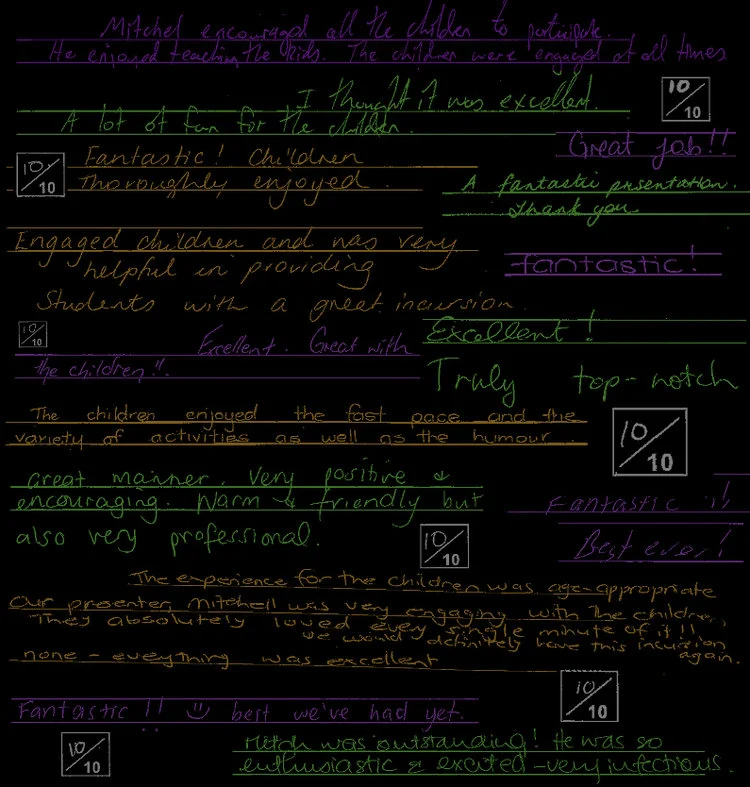 Mitchel encouraged all the children to participate.
He enjoyed teaching the kids. The children were engaged at all times
I thought it was excellent.
A lot of fun for the children.
10/10
Great job!!
10/10
Fantastic! Children
thoroughly enjoyed.
A fantastic presentation.
Thank you
Engaged children and was very
helpful in providing
Students with a great incursion.
fantastic!
10/10
Excellent. Great with
the children!!
Excellent!
Truly top-notch
The children enjoyed the fast pace and the
variety of activities as well as the humour.
10/10
Great manner. Very positive &
encouraging. Warm & friendly but
also very professional.
10/10
Fantastic!!
Best ever!
The experience for the children was age-appropriate
Our presenter, Mitchell was very engaging with the children,
They absolutely loved every single minute of it!!
We would definitely have this incursion
again.
none - everything was excellent
10/10
Fantastic!! best we've had yet.
10/10
Mitch was outstanding! He was so
enthusiastic & excited - very infectious.